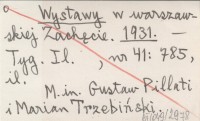 Wystawy w warszaw-
skiej Zachęcie. 1931. —
Tyg. Il., nr 41: 785,
il.
M. in. Gustaw Pillati
i Marian Trzebiński.